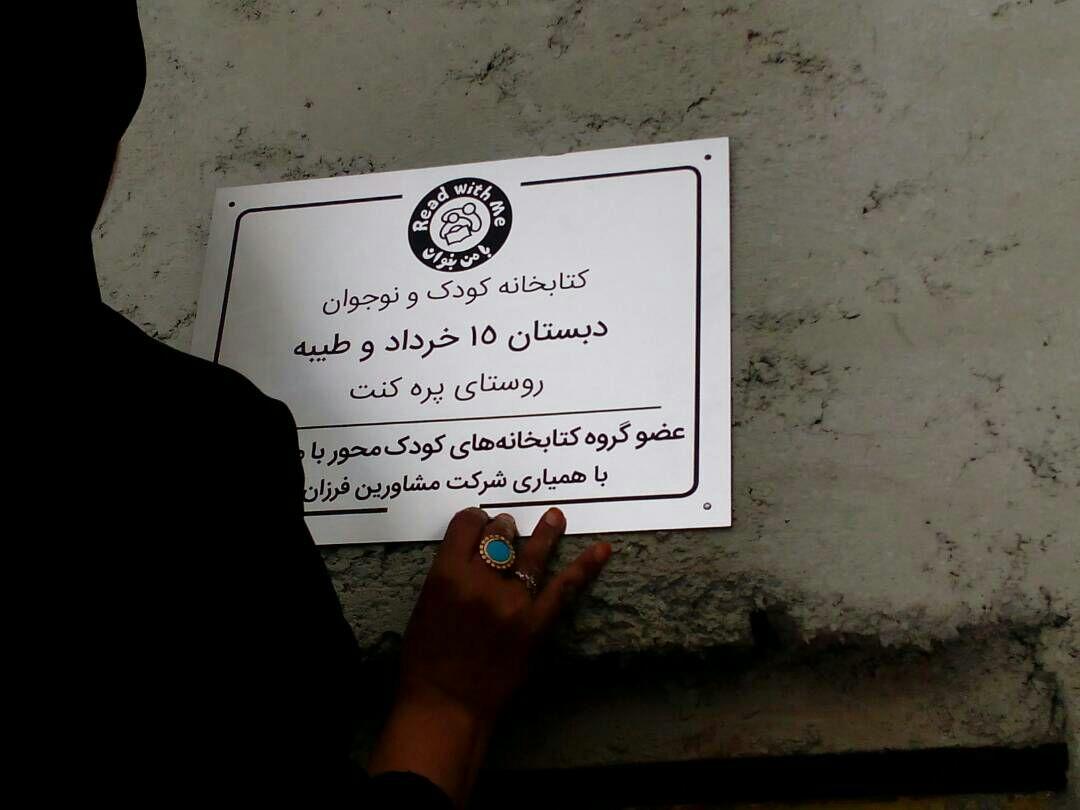 Read with Me
با من بخوان
کتابخانه کودک و نوجوان
دبستان ۱۵ خرداد و طیبه
روستای پره کنت
عضو گروه کتابخانه‌های کودک‌محور با
با همیاری شرکت مشاورین فرزان